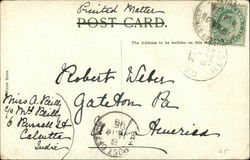 Printed Matter
POST CARD.
The Address to be written on this
Robert Weber
Gateton Pa
America
Miss A. Reilly
c/o Mrs Reilly
6 Russell St
Calcutta
India